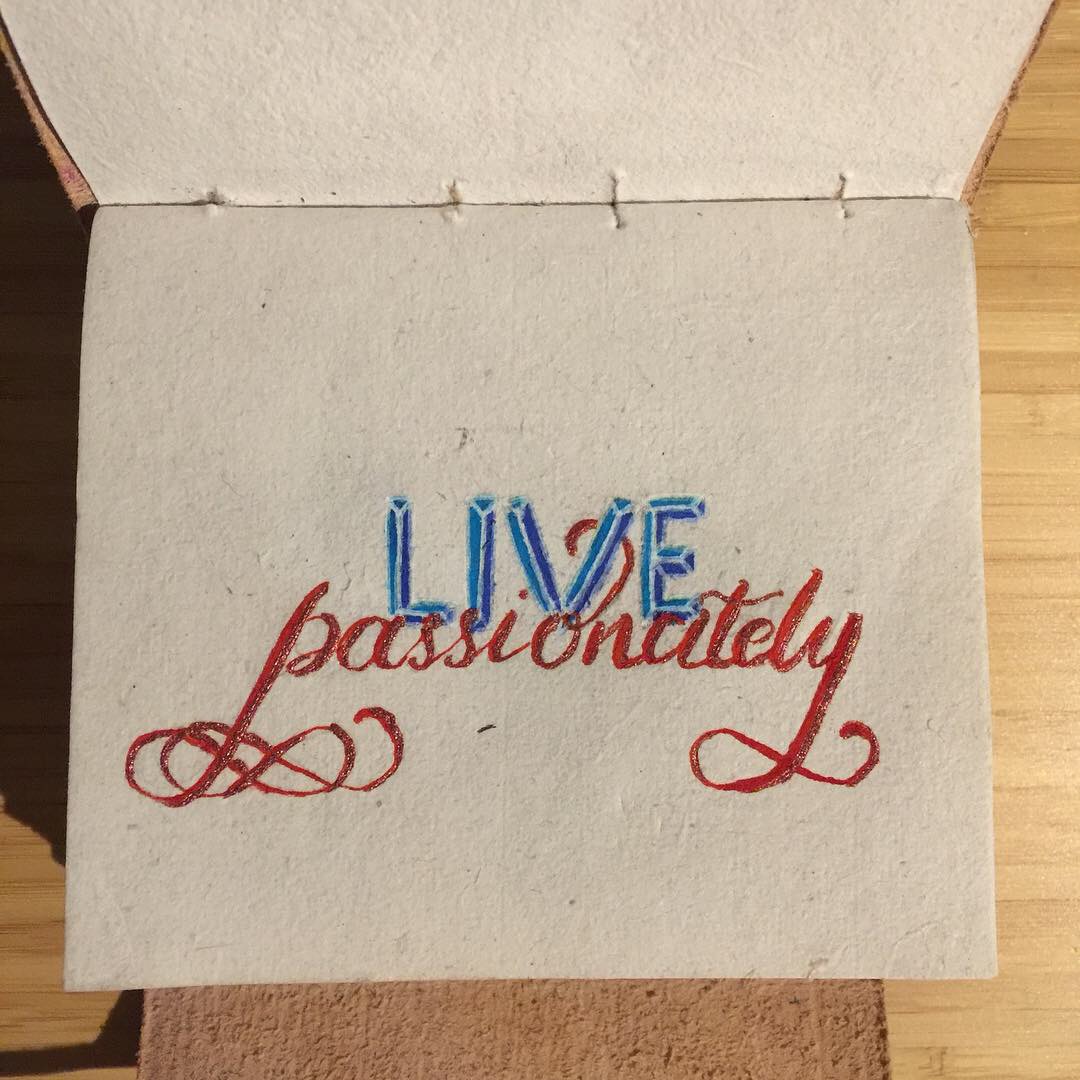 LIVE
passionately